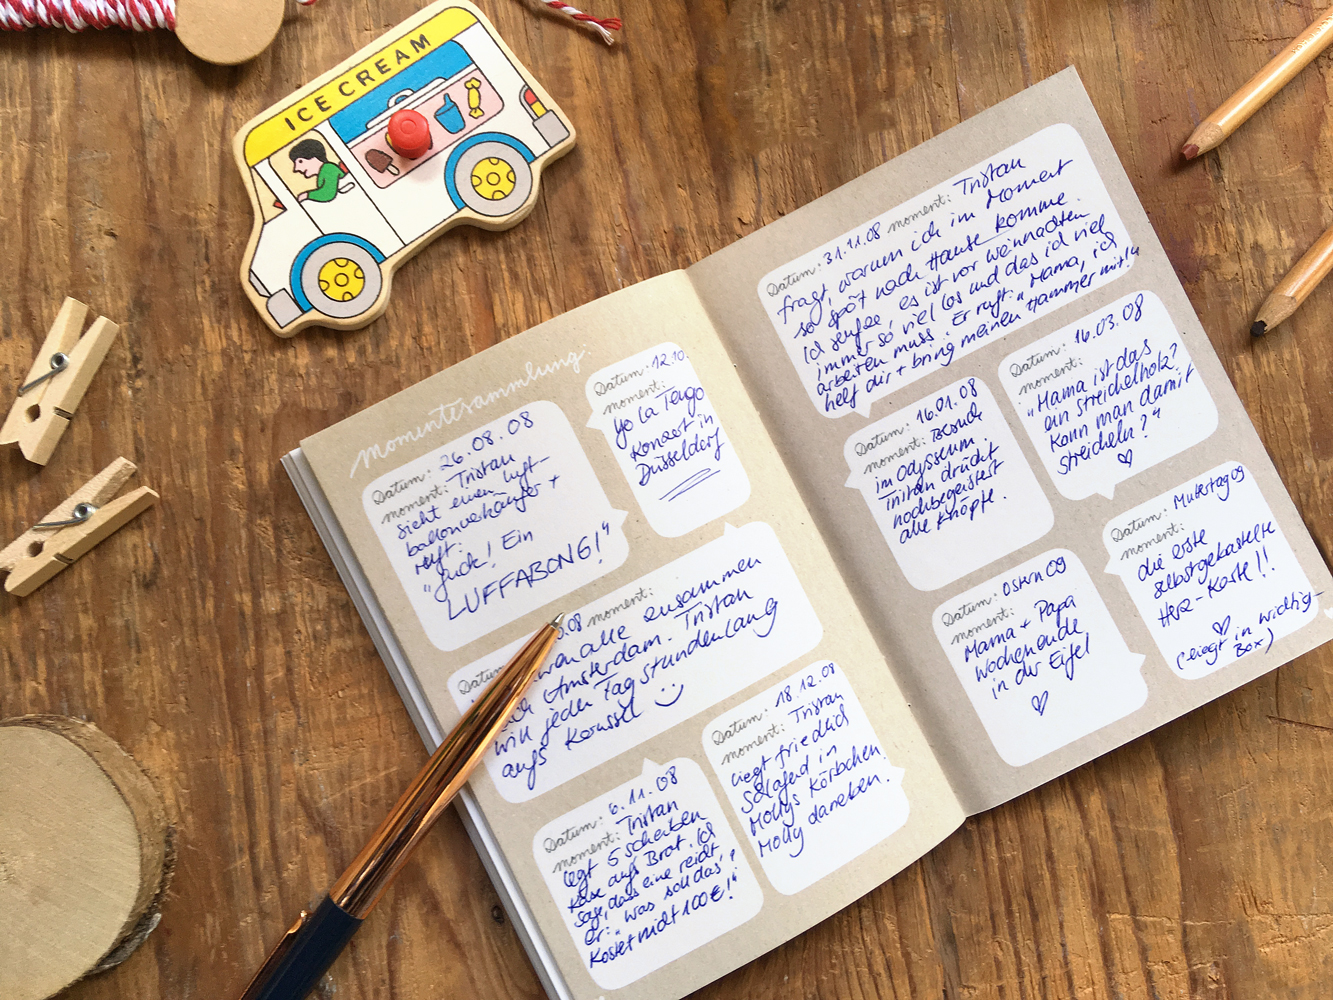 ICE CREAM
momentesammlung:
Datum: 26.08.08
moment: Tristan
sieht einen Luft-
ballonverkäufer +
ruft:
"Guck! Ein
LUFFABONG!"
Datum: 12.10.
moment:
Yo La Tengo
Konzert in
Düsseldorf
.08 moment:
alle zusammen
Amsterdam. Tristan
will jeden Tag stundenlang
aufs Karussell
Datum: 6.11.08
moment: Tristan
legt 5 Scheiben
Käse aufs Brot. Ich
sage, dass eine reicht
er: "was soll das?
Kostet nicht 100€!"
Datum: 18.12.08
moment: Tristan
liegt friedlich
schlafend in
Mollys Körbchen.
Molly daneben.
Datum: 31.11.08 moment: Tristan
fragt, warum ich im Moment
so spät nach Hause komme.
Ich seufze es ist vor Weihnachten
immer so viel los und das ich viel
arbeiten muss. Er ruft: "Mama, ich
helf dir + bring meinen Hammer mit!"
Datum: 16.01.08
moment: Besuch
im Odysseum.
Tristan drückt
hochbegeistert
alle Knöpfe.
Datum: 16.03.08
moment:
"Mama ist das
ein Streichelholz?
Kann man damit
streicheln?"
♡
Datum: Ostern 09
moment:
Mama + Papa
Wochenende
in der Eifel
♡
Datum: Muttertag 09
moment:
die erste
selbstgebastelte
Herz-Karte!!
♡
(liegt in wichtig-
Box)